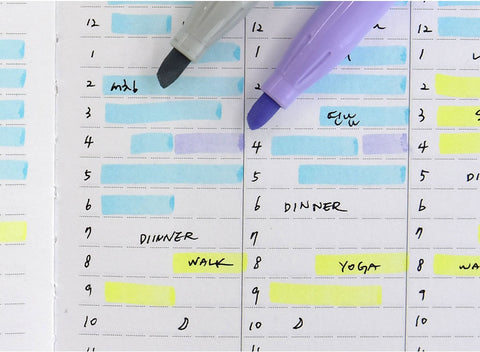 12 12 12
1 1 1
2 2 2
3 3 3
4 4 4
5 5 5
6 6 DINNER 6
7 DIINNER 7 7
8 WALK 8 YOGA 8 WA
9 9 9
10 D 10 D 10
11 11